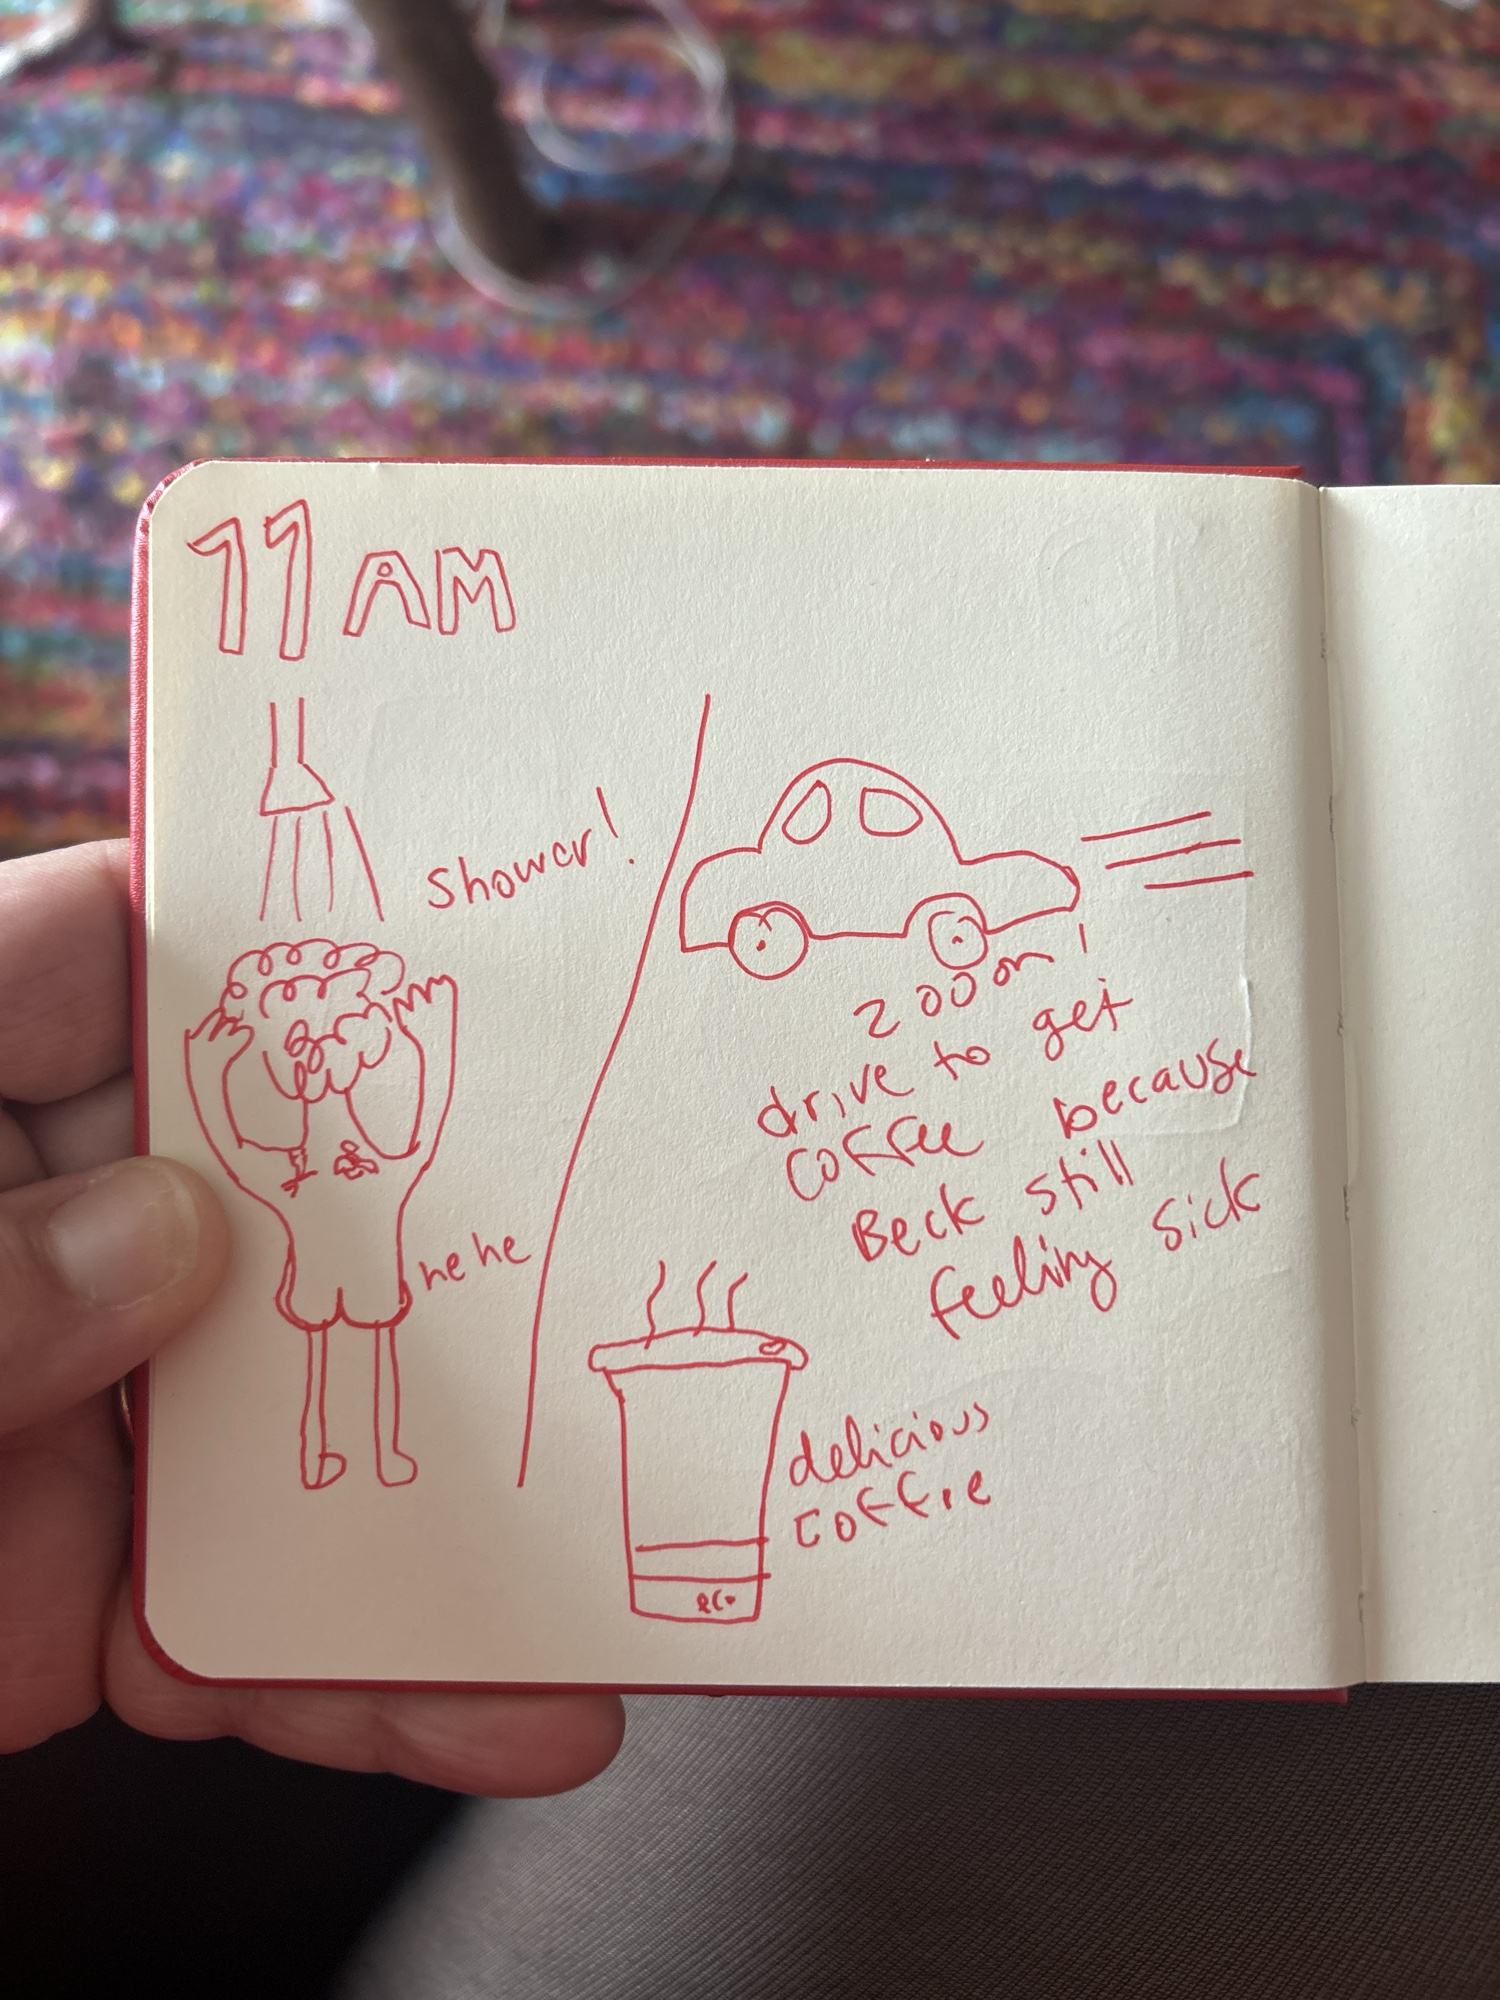 11 AM
Shower!
hehe
zoom!
drive to get
coffee because
Beck still
feeling sick
delicious
coffee
eco